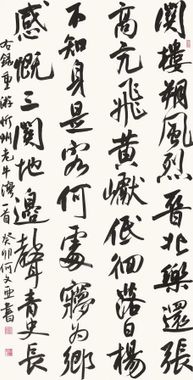 關樓朔風烈晉樂還張
高亢飛黃巘低徊落日楊
不知身是客何處為鄉
感慨三關地邊聲青史長
右錄重游忻州老牛灣一首 癸卯何文亞書